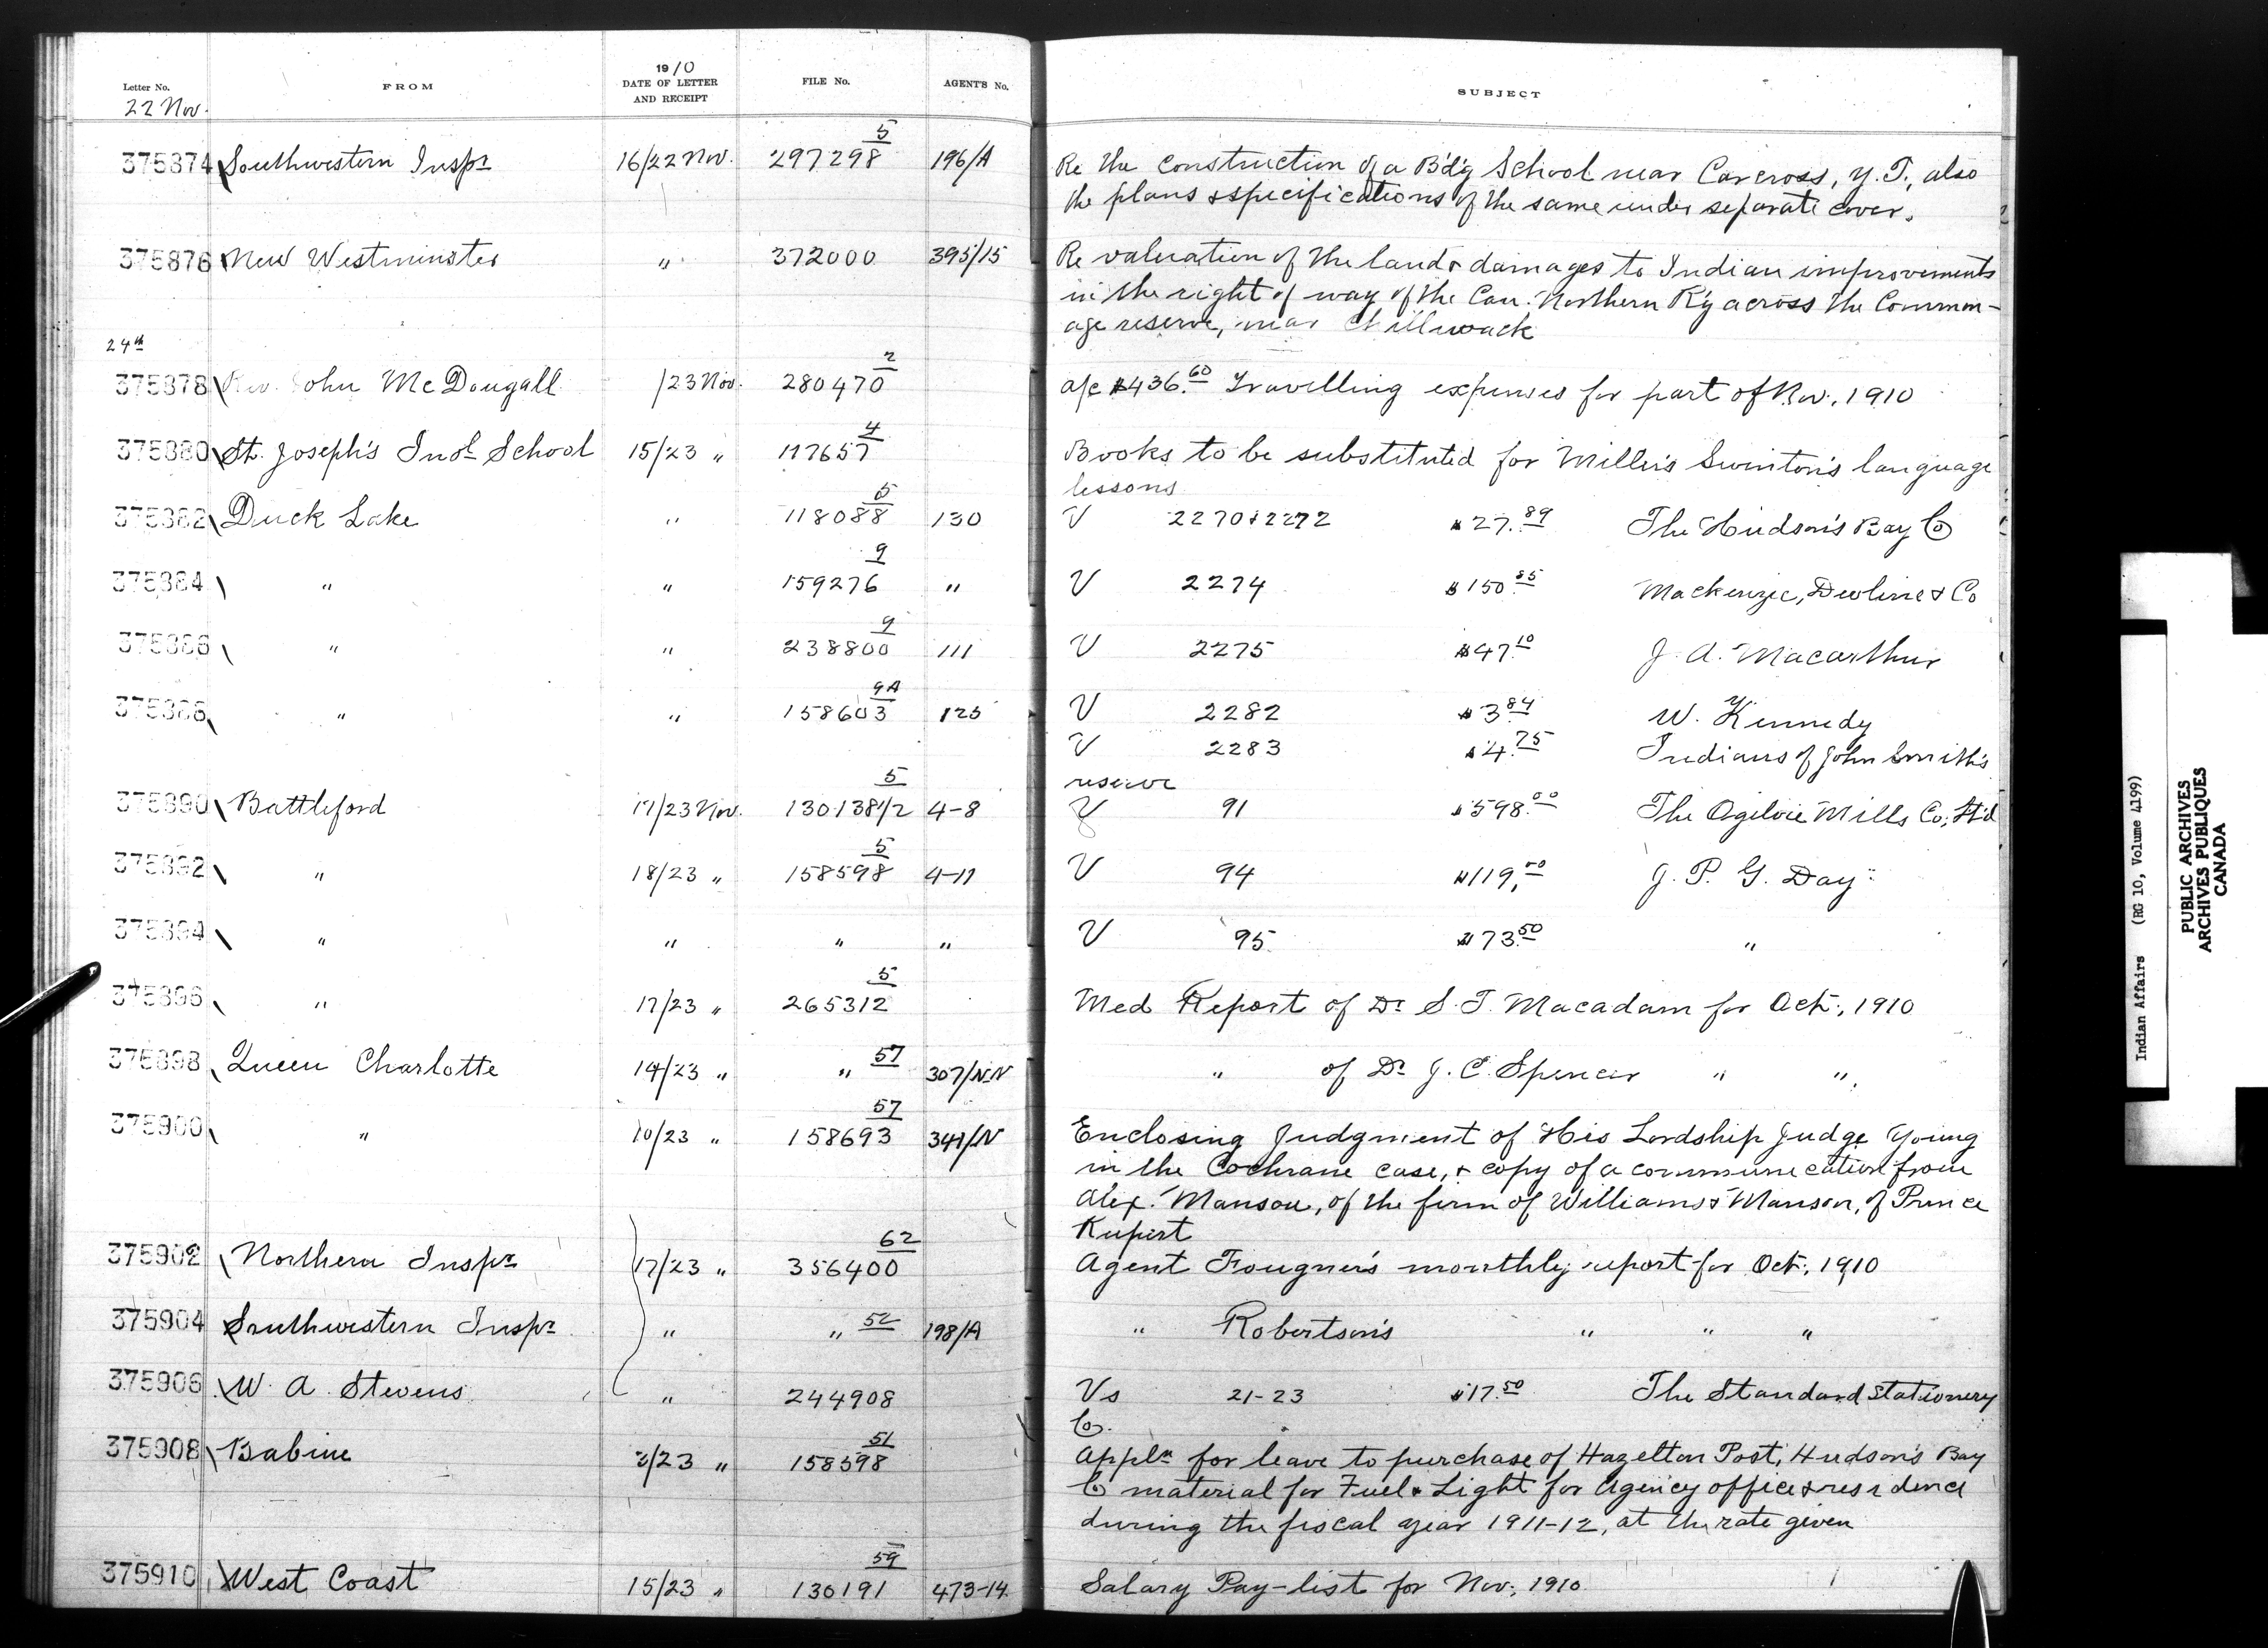 Letter No.
22 Nov.
FROM
1910
DATE OF LETTER
AND RECEIPT
FILE No.
AGENT'S No.
SUBJECT
375874 Southwestern Inspr 16/22 Nov. 297298 5 196/A Re the construction of a B'd'g School near Carcross, Y. T., also
the plans & specifications of the same under separate cover.
375876 New Westminster " 372000 395/15 Re valuation of the land & damages to Indian improvements
in the right of way of the Can. Northern R'y across the Common-
age reserve, near Chilliwack
24th
375878 Rev. John McDougall /23 Nov. 280470 2 a/c $436.60 Travelling expenses for part of Nov., 1910
375880 St. Joseph's Indl School 15/23 " 117657 4 Books to be substituted for Miller's Swinton's language
lessons
375882 Duck Lake " 118088 5 130 V 2270 & 2272 $27.89 The Hudson's Bay Co
375884 " " 159276 9 " V 2274 $150.85 Mackenzie, & Co
375886 " " 238800 9 111 V 2275 $47.10 J. A. Macarthur
375888 " " 158603 9A 125 V 2282 $3.84 W. Kennedy
V 2283 $4.75 Indians of John Smith's
reserve
375890 Battleford 17/23 Nov. 130138 1/2 5 4-8 V 91 $598.00 The Ogilvie Mills Co; Lt'd
375892 " 18/23 " 158598 5 4-11 V 94 $119.00 J. P. G. Day
375894 " " " " V 95 $73.50 "
375896 " 17/23 " 265312 5 Med Report of Dr S. T. Macadam for Oct., 1910
375898 Queen Charlotte 14/23 " " 57 307/N.N " of Dr J. C. Spencer " ".
375900 " 10/23 " 158693 57 341/N Enclosing Judgment of His Lordship Judge Young
in the Cochrane case, & copy of a communication from
Alex. Manson, of the firm of Williams & Manson, of Prince
Rupert
375902 Northern Inspr 17/23 " 356400 62 Agent Fougner's monthly report for Oct., 1910
375904 Southwestern Inspr " " 52 198/A " Robertson's " " "
375906 W. A. Stevens " 244908 Vs 21-23 $17.50 The Standard Stationery
Co.
375908 Babine 2/23 " 158598 51 Appln for leave to purchase of Hazelton Post, Hudson's Bay
Co material for Fuel & Light for Agency office & residence
during the fiscal year 1911-12, at the rate given
375910 West Coast 15/23 " 130191 59 473-14 Salary Pay-list for Nov., 1910
Indian Affairs (RG 10, Volume 4199)
PUBLIC ARCHIVES
ARCHIVES PUBLIQUES
CANADA